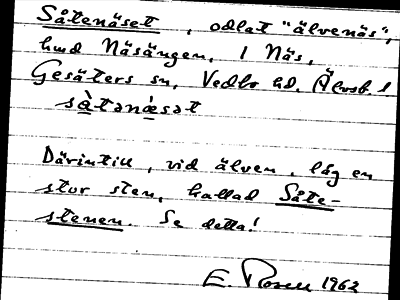 Såtenäset, odlat "älvenäs",
hmd Näsängen, 1 Näs,
Gesäters sn, Vedbo hd. Älvsb. l
sàtənæ̀sət
Därintill, vid älven, låg en
stor sten, kallad Såte-
stenen. Se detta!
E. Rosell 1962